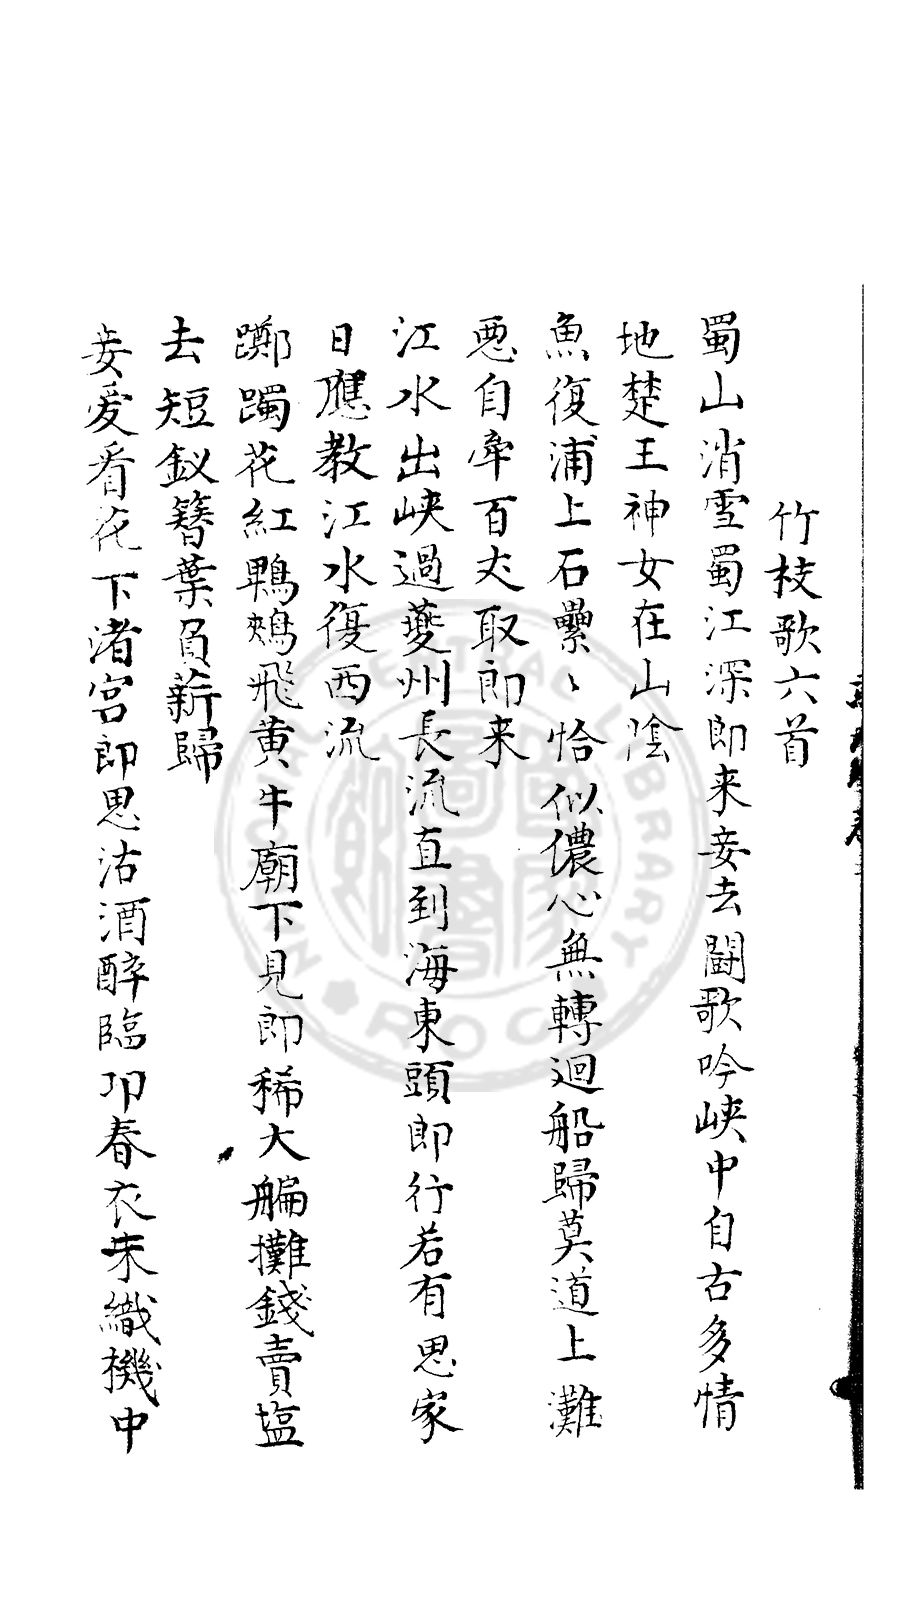 竹枝歌六首
蜀山消雪蜀江深郎来妾去鬭歌吟峡中自古多情
地楚王神女在山陰
魚復浦上石纍〻恰似儂心無轉迴船歸莫道上灘
惡自牽百丈取郎来
江水出峡過夔州長流直到海東頭郎行若有思家
日應教江水復西流
躑躅花紅鵯鵊飛黄牛廟下見郎稀大艑攤錢賣塩
去短釵簪葉負薪歸
妾愛看花下渚宮郎思沽酒醉臨卭春衣未織機中
NATIONAL CENTRAL LIBRARY
R.O.C.